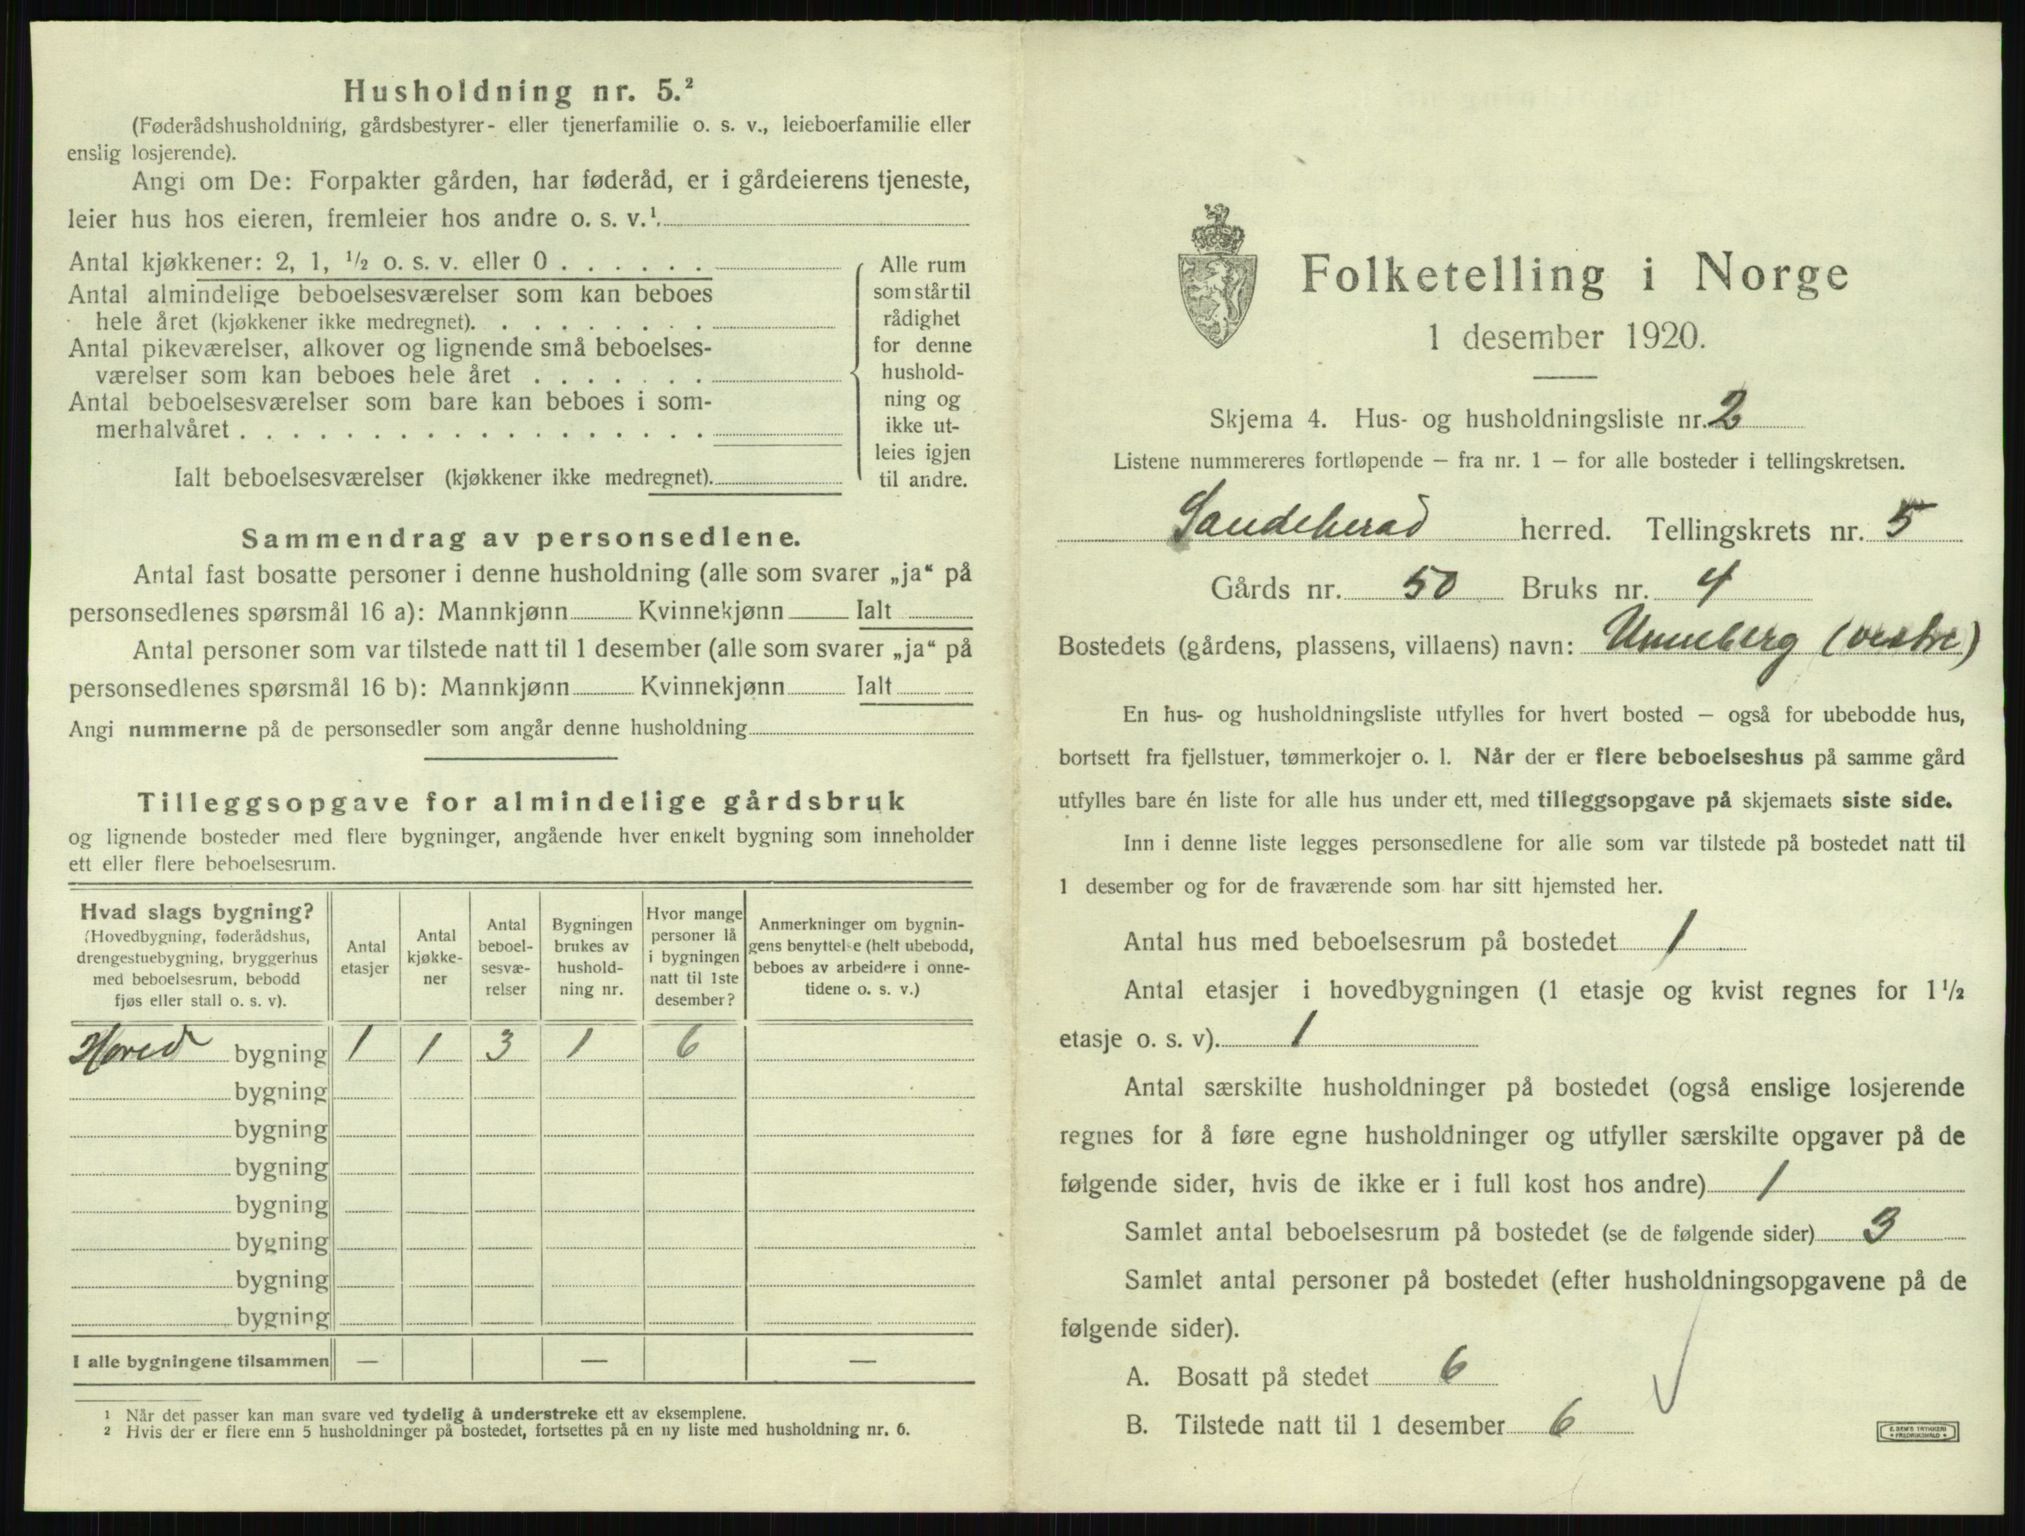 Husholdning nr. 5.²
(Føderådshusholdning, gårdsbestyrer- eller tjenerfamilie o. s. v., leieboerfamilie eller
enslig losjerende).
Angi om De: Forpakter gården, har føderåd, er i gårdeierens tjeneste,
leier hus hos eieren, fremleier hos andre o. s. v.¹
Antal kjøkkener: 2, 1, ½ o. s. v. eller 0
Antal almindelige beboelsesværelser som kan beboes
hele året (kjøkkener ikke medregnet)
Antal pikeværelser, alkover og lignende små beboelses-
værelser som kan beboes hele året
Antal beboelsesværelser som bare kan beboes i som-
merhalvåret
Ialt beboelsesværelser (kjøkkener ikke medregnet)
Alle rum
som står til
rådighet
for denne
hushold-
ning og
ikke ut-
leies igjen
til andre.
Sammendrag av personsedlene.
Antal fast bosatte personer i denne husholdning (alle som svarer „ja“ på
personsedlenes spørsmål 16 a): Mannkjønn Kvinnekjønn Ialt
Antal personer som var tilstede natt til 1 desember (alle som svarer „ja“ på
personsedlenes spørsmål 16 b): Mannkjønn Kvinnekjønn Ialt
Angi nummerne på de personsedler som angår denne husholdning
Tilleggsopgave for almindelige gårdsbruk
og lignende bosteder med flere bygninger, angående hver enkelt bygning som inneholder
ett eller flere beboelsesrum.
Hvad slags bygning?
(Hovedbygning, føderådshus,
drengestuebygning, bryggerhus
med beboelsesrum, bebodd
fjøs eller stall o. s. v).
Antal
etasjer
Antal
kjøkke-
ner
Antal
beboel-
sesvæ-
relser
Bygningen
brukes av
hushold-
ning nr.
Hvor mange
personer lå
i bygningen
natt til 1ste
desember?
Anmerkninger om bygnin-
gens benyttelse (helt ubebodd,
beboes av arbeidere i onne-
tidene o. s. v.)
Hoved bygning 1 1 3 1 6
bygning
bygning
bygning
bygning
bygning
bygning
bygning
I alle bygningene tilsammen — — —
1 Når det passer kan man svare ved tydelig å understreke ett av eksemplene.
2 Hvis der er flere enn 5 husholdninger på bostedet, fortsettes på en ny liste med husholdning nr. 6.
Folketelling i Norge
1 desember 1920.
Skjema 4. Hus- og husholdningsliste nr. 2
Listene nummereres fortløpende — fra nr. 1 — for alle bosteder i tellingskretsen.
Sandeherad herred. Tellingskrets nr. 5
Gårds nr. 50 Bruks nr. 4
Bostedets (gårdens, plassens, villaens) navn: Unneberg (vestre)
En hus- og husholdningsliste utfylles for hvert bosted — også for ubebodde hus,
bortsett fra fjellstuer, tømmerkojer o. l. Når der er flere beboelseshus på samme gård
utfylles bare én liste for alle hus under ett, med tilleggsopgave på skjemaets siste side.
Inn i denne liste legges personsedlene for alle som var tilstede på bostedet natt til
1 desember og for de fraværende som har sitt hjemsted her.
Antal hus med beboelsesrum på bostedet 1
Antal etasjer i hovedbygningen (1 etasje og kvist regnes for 1½
etasje o. s. v). 1
Antal særskilte husholdninger på bostedet (også enslige losjerende
regnes for å føre egne husholdninger og utfyller særskilte opgaver på de
følgende sider, hvis de ikke er i full kost hos andre) 1
Samlet antal beboelsesrum på bostedet (se de følgende sider) 3
Samlet antal personer på bostedet (efter husholdningsopgavene på de
følgende sider).
A. Bosatt på stedet 6
B. Tilstede natt til 1 desember 6
E. SEM'S TRYKKERI
FREDRIKSHALD